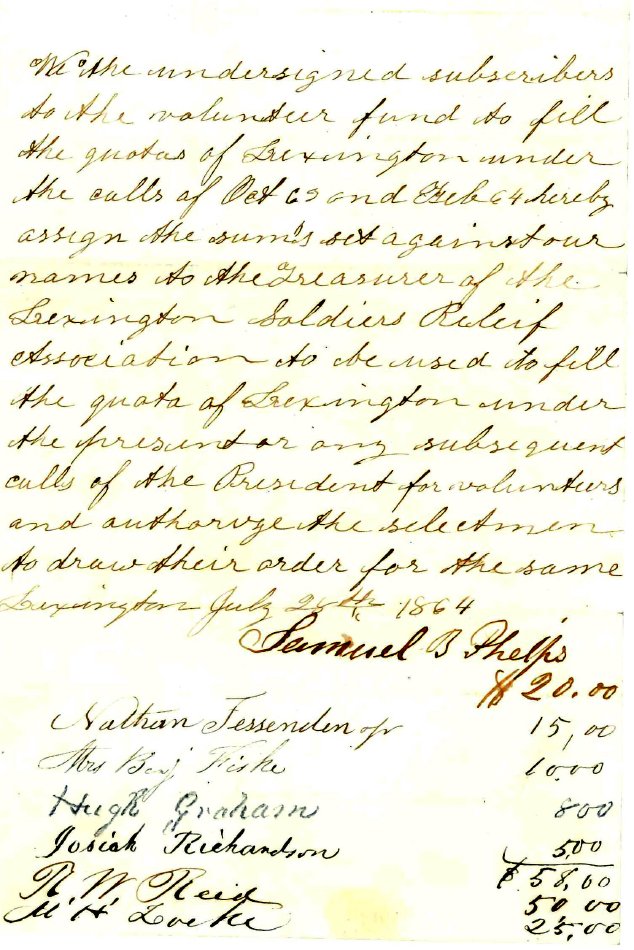 We the undersigned subscribers
to the volunteer fund to fill
the quotas of Lexington under
the calls of Oct 63 and Feb 64 hereby
assign the sum's set against our
names to the Treasurer of the
Lexington Soldiers Releif
Association to be used to fill
the quota of Lexington under
the present or any subsequent
calls of the President for volunteers
and authoryze the selectmen
to draw their order for the same
Lexington July 1864
Samuel B Phelps
$20.00
Nathan Fessenden 15,00
Mrs Benj Fiske 10.00
Hugh Graham 800
Josiah Richardson 5.00
$58,00
R. W. Reid 50.00
M. H. Locke 25,00